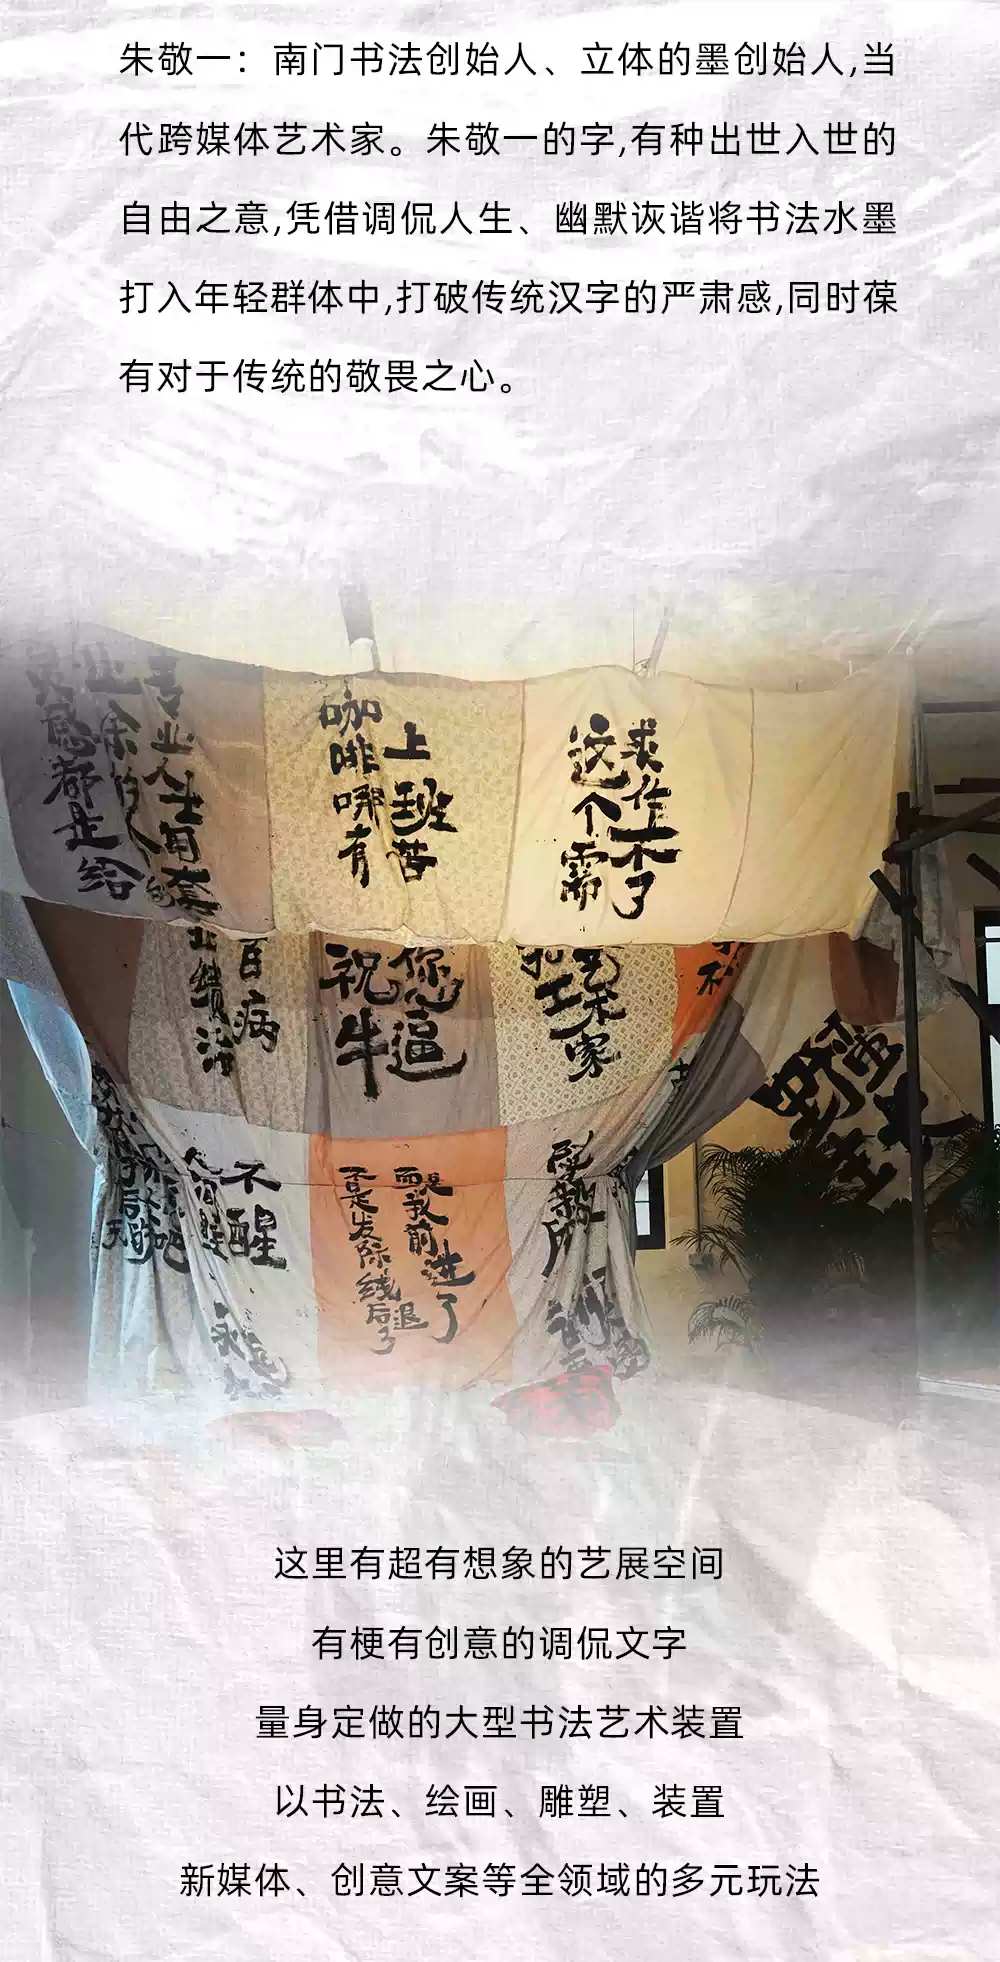 朱敬一：南门书法创始人、立体的墨创始人,当
代跨媒体艺术家。朱敬一的字,有种出世入世的
自由之意,凭借调侃人生、幽默诙谐将书法水墨
打入年轻群体中,打破传统汉字的严肃感,同时葆
有对于传统的敬畏之心。
专业人士用
业余的人
灵感都是给
上班苦
咖啡哪有
求作不了
这个需
百病
业绩治
你逼
祝牛
艺术家
不醒
而是我前进了
不是发际线后退了
这里有超有想象的艺展空间
有梗有创意的调侃文字
量身定做的大型书法艺术装置
以书法、绘画、雕塑、装置
新媒体、创意文案等全领域的多元玩法